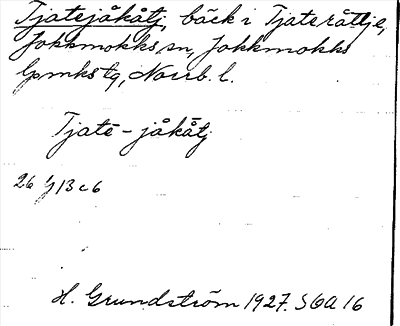 Tjatejåkåtj, bäck i Tjateråttje,
Jokkmokks sn, Jokkmokks
lpmks tg, Norrb. l.
Tjatē-jåkåtj
26 I 13 c 6
H. Grundström 1927. SOA 16